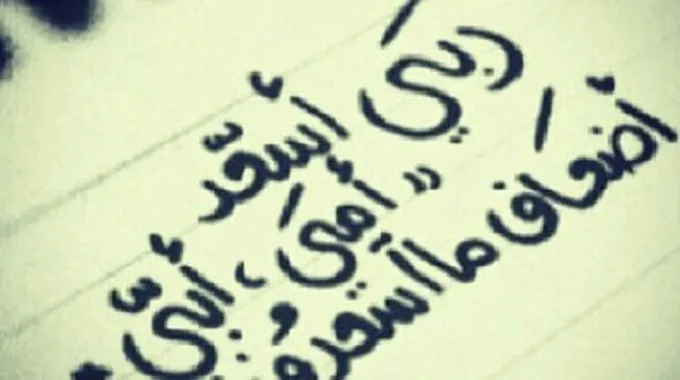 ربي أسعد
" أمي ، أبي "
أضعاف ما أسعدو